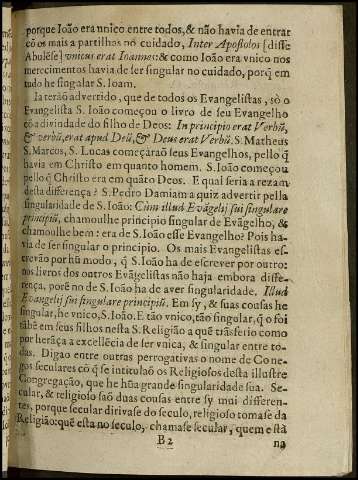 porque Ioão era vnico entre todos, & não havia de entrar
cõ os mais a partilhas no cuidado, Inter Apostolos [disse
Abulêse] vnicus erat Ioannes: & como Ioão era vnico nos
merecimentos havia de ser singular no cuidado, porq̃ em
tudo he singular S. Ioam.
Ia terão advertido, que de todos os Evangelistas, só o
Evangelista S. Ioão começou o livro de seu Evangelho
cõ a divindade do filho de Deos: In principio erat Verbũ,
& verbũ, erat apud Deũ, & Deus erat Verbũ. S. Matheus
S. Marcos, S. Lucas começàraõ seus Evangelhos, pello q̃
havia em Christo em quanto homem. S. Ioão começou
pello q̃ Christo era em quãto Deos. E qual seria a rezam
desta differença? S. Pedro Damiam a quiz advertir pella
singularidade de S. Ioão: Cùm illud Evãgelij sui singulare
principiũ, chamoulhe principio singular de Evãgelho, &
chamoulhe bem: era de S. Ioão esse Evangelho? Pois ha-
via de ser singular o principio. Os mais Evangelistas es-
crevão por hũ modo, q̃ S. Ioão ha de escrever por outro:
nos livros dos outros Evãgelistas não haja embora diffe-
rença, porẽ no de S. Ioão ha de aver singularidade. Illud
Evangelij sui singulare principiũ. Em sy, & suas cousas he
singular, he vnico, S. Ioão. E tão vnico, tão singular, q̃ o foi
tãbẽ em seus filhos nesta S. Religião a quẽ trãsferio como
por herãça a excellẽcia de ser vnica, & singular entre to-
das. Digão entre outras perrogativas o nome de Cone-
gos seculares cõ q̃ se intitulaõ os Religiosos desta illustre
Congregação, que he hũa grande singularidade sua. Se-
cular, & religioso saõ duas cousas entre sy mui differen-
tes, porque secular dirivase do seculo, religioso tomase da
Religião: quẽ està no seculo, chamase secular, quem està
B 2
na